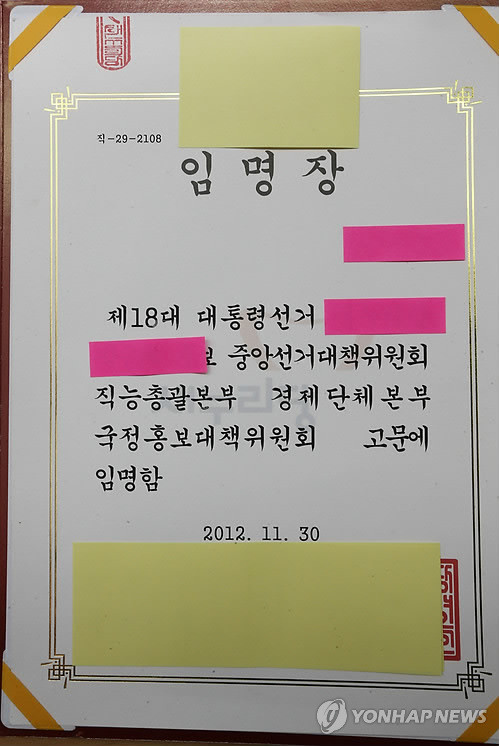 직-29-2108
임 명 장
제18대 대통령선거
보 중앙선거대책위원회
직능총괄본부 경제단체본부
국정홍보대책위원회 고문에
임명함
2012. 11. 30
YONHAP NEWS